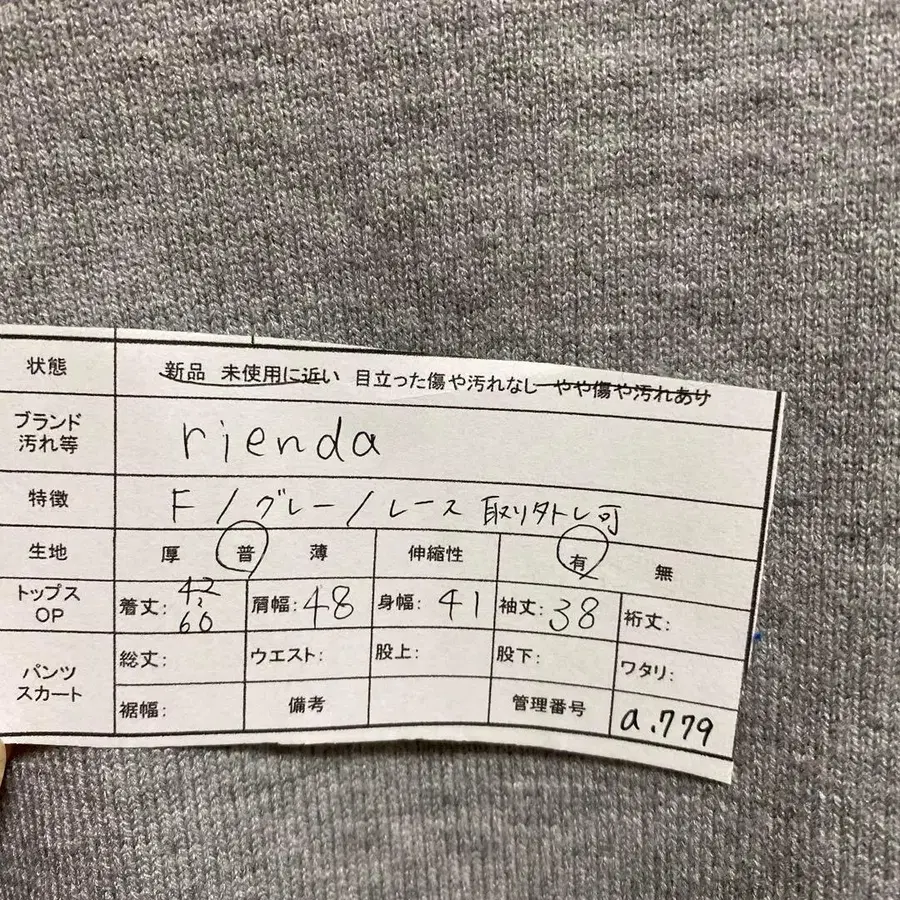 状態 新品 未使用に近い 目立った傷や汚れなし やや傷や汚れあり
ブランド 汚れ等 rienda
特徴 F / グレー / レース 取りタトレ可
生地 厚 普 薄 伸縮性 有 無
トップス OP 着丈: 42 60 肩幅: 48 身幅: 41 袖丈: 38 裄丈:
パンツ スカート 総丈: ウエスト: 股上: 股下: ワタリ:
裾幅: 備考 管理番号 a.779